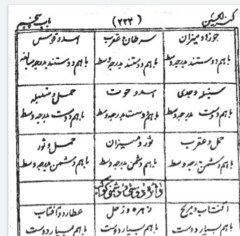 (۲۲۲)
جوزا و میزان
سرطان عقرب
اسد و قوس
باہم دوستند بدرجہ وسط
باہم دوستند بدرجہ وسط
باہم دوستند بدرجہ
سنبلہ وجدی
اسد و حوت
حمل سنبلہ
باہم دوست بدرجہ وسط
باہم دوست بدرجہ وسط
باہم دوست بدرجہ وسط
حمل و عقرب
ثور و میزان
حمل و ثور
باہم دشمن بدرجہ وسط
باہم دشمن بدرجہ وسط
باہم دشمن بدرجہ وسط
دائرہ دوستی و دشمنی کواکب
آفتاب و مریخ
زہرہ و زحل
عطارد و آفتاب
باہم بسیار دوست
باہم بسیار دوست
باہم بسیار دوست